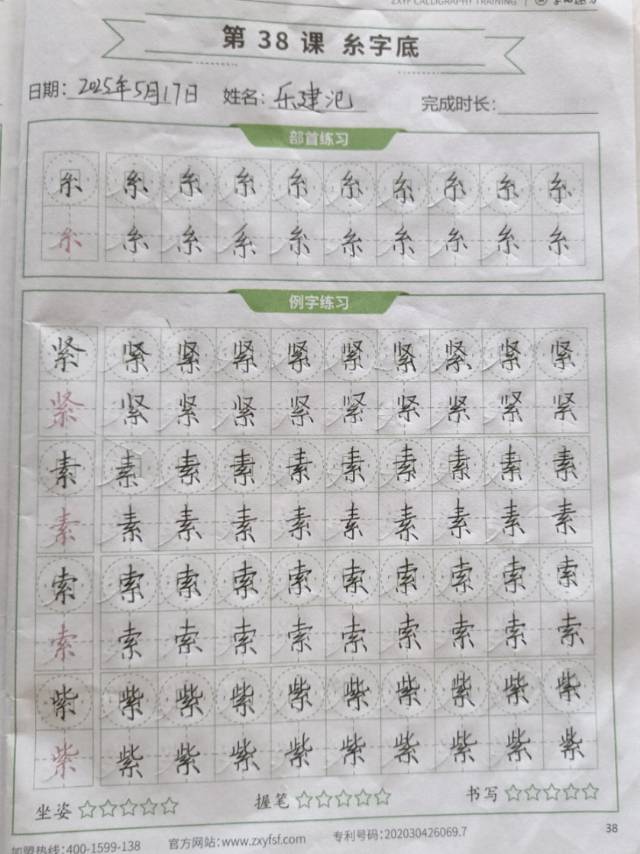 ZXYF CALLIGRAPHY TRAINING
第 38 课 糸字底
日期: 2025年5月17日 姓名: 乐建汜 完成时长:
部首练习
糸 糸 糸 糸 糸 糸 糸 糸 糸 糸
糸 糸 糸 糸 糸 糸 糸 糸 糸 糸
例字练习
紧 紧 紧 紧 紧 紧 紧 紧 紧 紧
紧 紧 紧 紧 紧 紧 紧 紧 紧 紧
素 素 素 素 素 素 素 素 素 素
素 素 素 素 素 素 素 素 素 素
索 索 索 索 索 索 索 索 索 索
索 索 索 索 索 索 索 索 索 索
紫 紫 紫 紫 紫 紫 紫 紫 紫 紫
紫 紫 紫 紫 紫 紫 紫 紫 紫 紫
坐姿 ☆☆☆☆☆ 握笔 ☆☆☆☆☆ 书写 ☆☆☆☆☆
38
加盟热线:400-1599-138 官方网站:www.zxyfsf.com 专利号码:202030426069.7